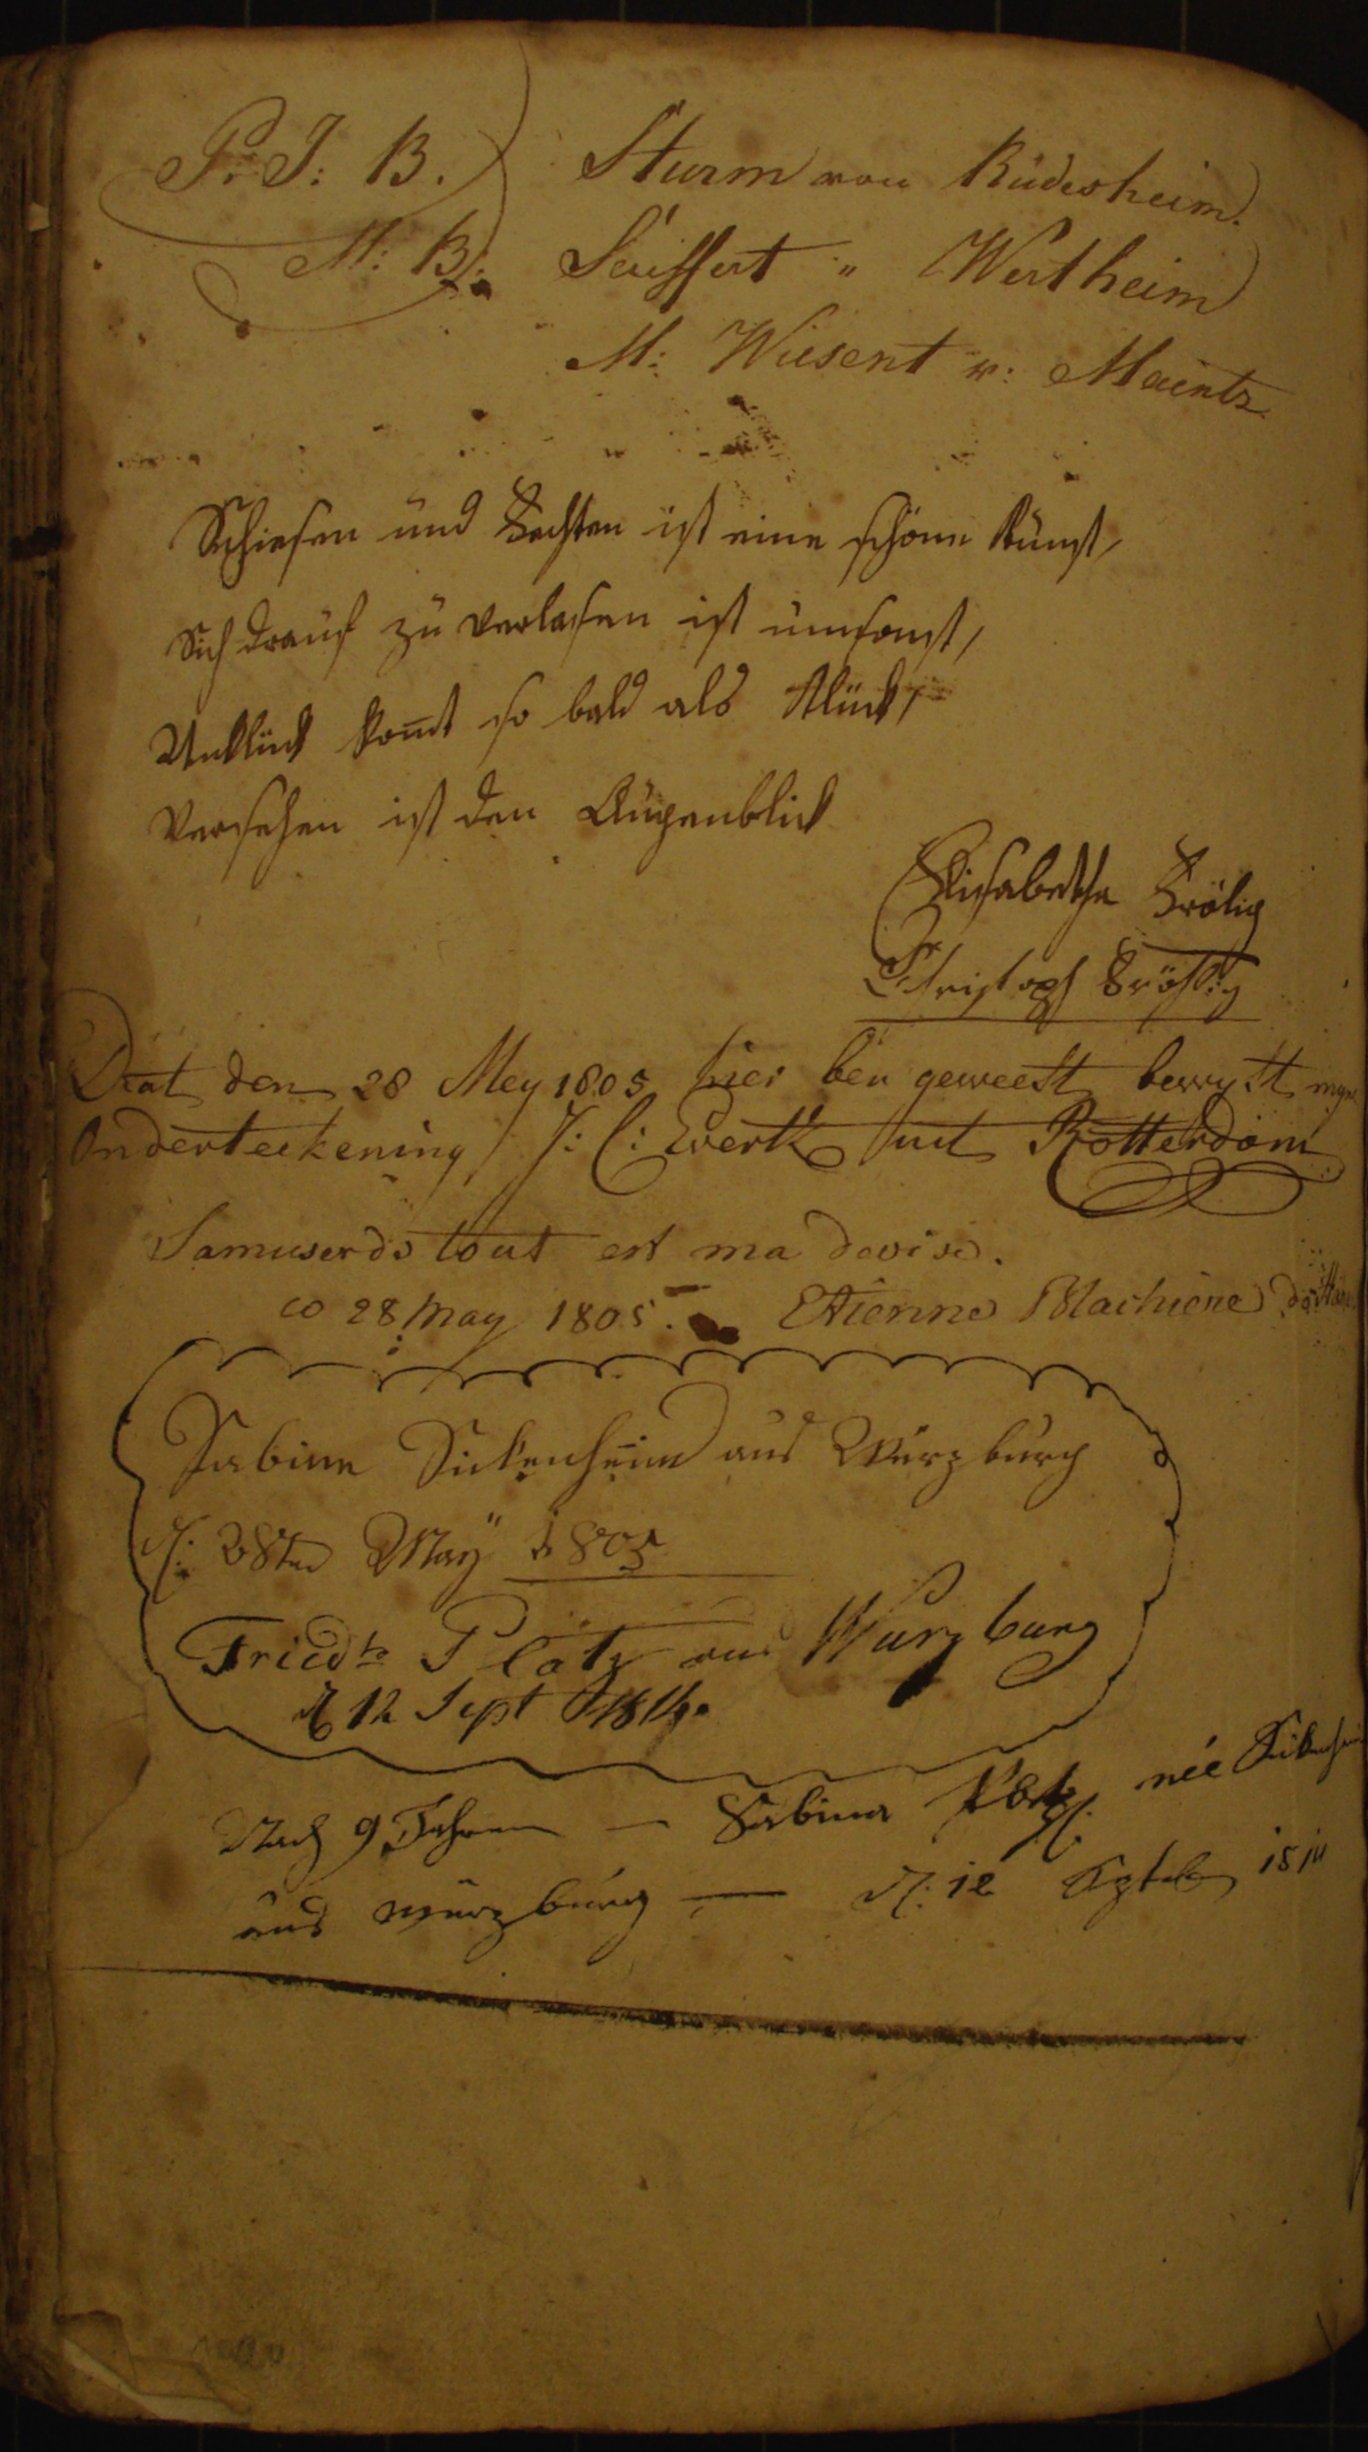 P: J: B. Sturm von Rüdesheim.
M: B: Seuffert " Wertheim
M: Wiesent v: Maintz.
Schiesen und Fechten ist eine schöne Kunst,
Sich drauf zu verlassen ist umsonst,
Unklück komt so bald als Klück,
Versehen ist den Augenblick
Elisabetha Frölig
Christoph Fröhlig
Dat den 28 Mey 1805 hier ben geweest bewyst myn
Onderteekening J: C: Evertz uit Rotterdam
Samuser de tout est ma devise.
co 28 may 1805. Etienne
Sabina Sickenheim aus Würzburg
d: 28ten May 1805
Friedr Platz aus Würzburg
d 12 Sept 1814.
Nach 9 Jahren — Sabina née
aus Würzburg — d: 12 1814